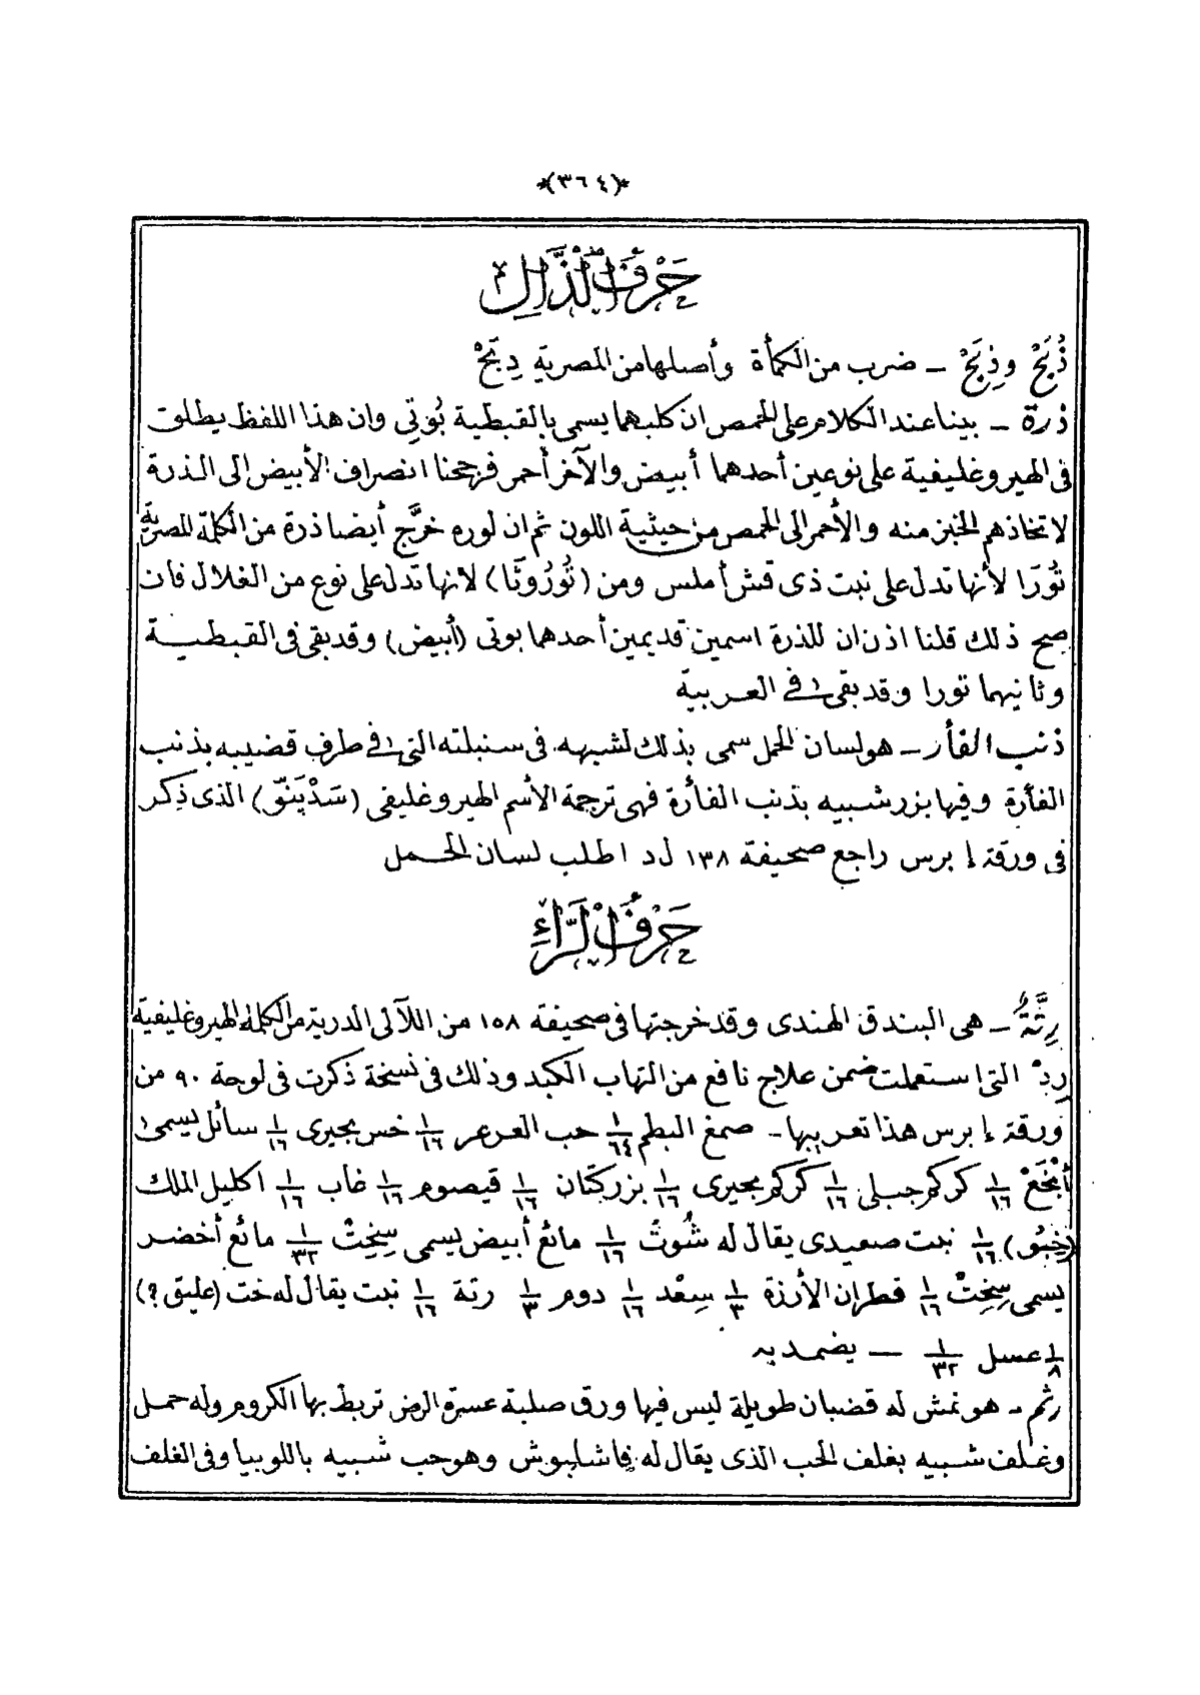 *(٣٦٤)*
حَرْفُ الذَّالِ
ذُبَحْ وذِبَحْ – ضرب من الكمأة وأصلها من المصرية دِبَحْ
ذرة – بينا عند الكلام على الحمص ان كلبهما يسمى بالقبطية بُوتِي وان هذا اللفظ يطلق
فى الهيروغليفية على نوعين أحدهما أبيض والآخر أحمر فرجحنا انصراف الأبيض الى الذرة
لاتخاذهم الخبز منه والأحمر الى الحمص من حيثية اللون ثم ان لوره خرَّج أيضا ذرة من الكلمة المصرية
ثُورَا لأنها تدل على نبت ذى قش أملس ومن (ثُورُوتَا) لانها تدل على نوع من الغلال فان
صح ذلك قلنا اذن ان للذرة اسمين قديمين أحدهما بوتى (أبيض) وقد بقى فى القبطية
وثانيهما ثورا وقد بقى فى العربية
ذنب الفأر – هو لسان الحمل سمى بذلك لشبهه فى سنبلته التى فى طرف قضيبه بذنب
الفأرة وفيها بزر شبيه بذنب الفأرة فهى ترجمة الأسم الهيروغليفى (سَدْپَنّو) الذى ذِكر
فى ورقة إبرس راجع صحيفة ١٣٨ ل د اطلب لسان الحمل
حَرْفُ الرَّاءِ
رِتَّةٌ – هى البندق الهندى وقد خرجتها فى صحيفة ١٥٨ من اللآلى الدرية من الكلمة الهيروغليفية
رِدْ التى استعملت ضمن علاج نافع من التهاب الكبد وذلك فى نسخة ذكرت فى لوحة ٩٠ من
ورقة إبرس هذا تعريبها – صمغ البطم ١/٦٤ حب العرعر ١/١٦ خس بحيرى ١/١٦ سائل يسمى
أَبْخَعْ ١/١٦ كركم جبلى ١/١٦ كركم بحيرى ١/١٦ بزركتان ١/١٦ قيصوم ١/١٦ غاب ١/١٦ اكليل الملك
(خِبَو) ١/١٦ نبت صعيدى يقال له شُوتْ ١/١٦ مائع أبيض يسمى سِخِتْ ١/٣٢ مائع أخضر
يسمى سِخِتْ ١/١٦ قطران الأرزة ١/٣ سِعْد ١/١٦ دوم ١/٣ رتة ١/١٦ نبت يقال له خت (عليق ؟)
١/٨ عسل ١/٣٢ – يضمد به
رتم – هو نمش له قضبان طويلة ليس فيها ورق صلبة عسرة الرض تربط بها الكروم وله حمل
وغلف شبيه بغلف الحب الذى يقال له فاشليوش وهو حب شبيه باللوبيا وفى الغلف